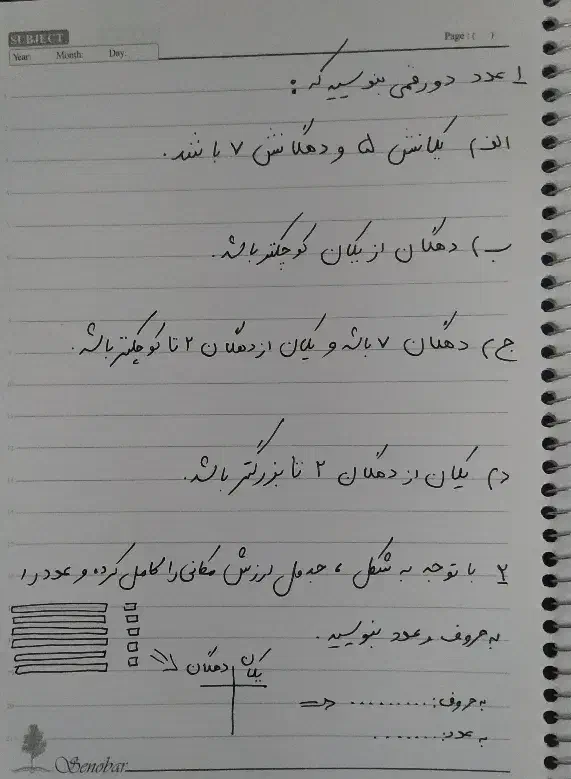 SUBJECT
Page : (    )
Year: Month: Day:
۱ عدد دو رقمی بنویسید که :
الف) یکانش ۵ و دهگانش ۷ باشد.
ب) دهگان از یکان کوچکتر باشد.
ج) دهگان ۷ باشد و یکان از دهگان ۲ تا کوچکتر باشد.
د) یکان از دهگان ۲ تا بزرگتر باشد.
۲ با توجه به شکل ، جدول ارزش مکانی را کامل کرده و عدد را
به حروف و عدد بنویسید.
یکان دهگان
به حروف: ..........
به عدد: .......
Senobar